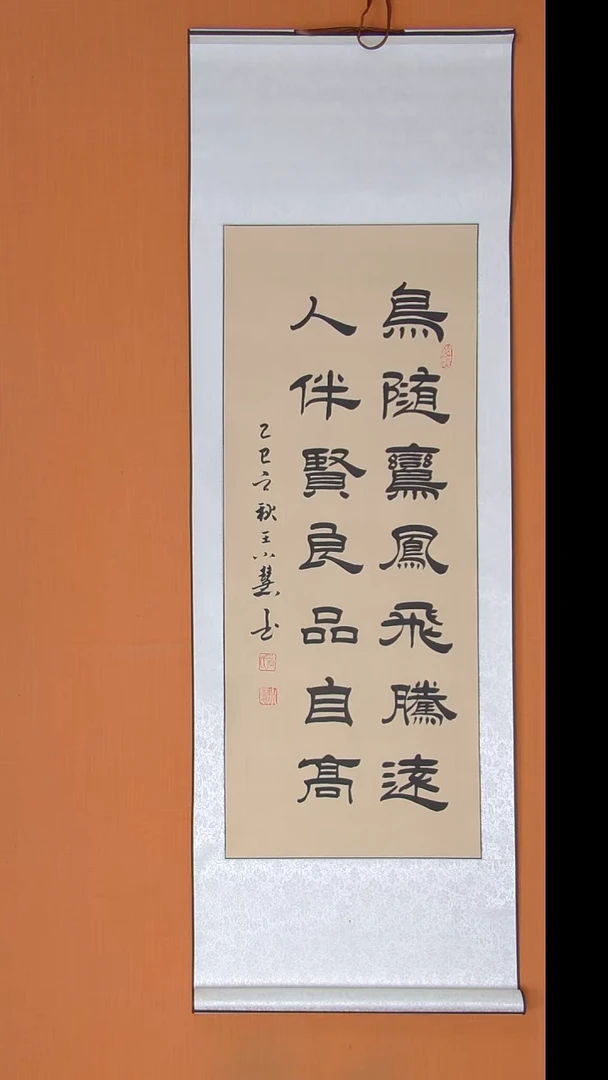 鳥隨鸞鳳飛騰遠
人伴賢良品自高
乙巳之秋王小慧書